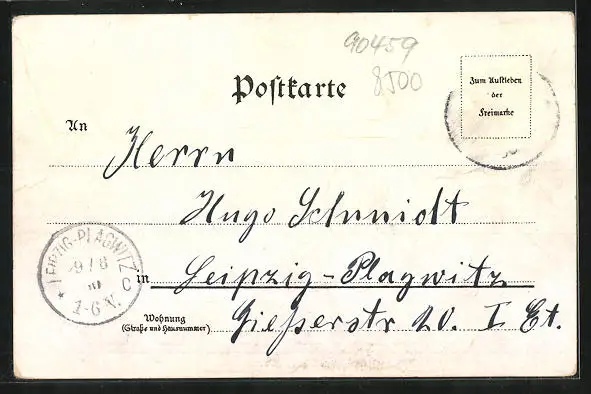 90459
8500
Postkarte
Zum Aufkleben
der
Freimarke
An
Herrn
Hugo Schmidt
LEIPZIG-PLAGWITZ
C
9/8
1-6 N.
in Leipzig-Plagwitz
Wohnung
(Straße und Hausnummer)
Gießerstr 20. I Et.